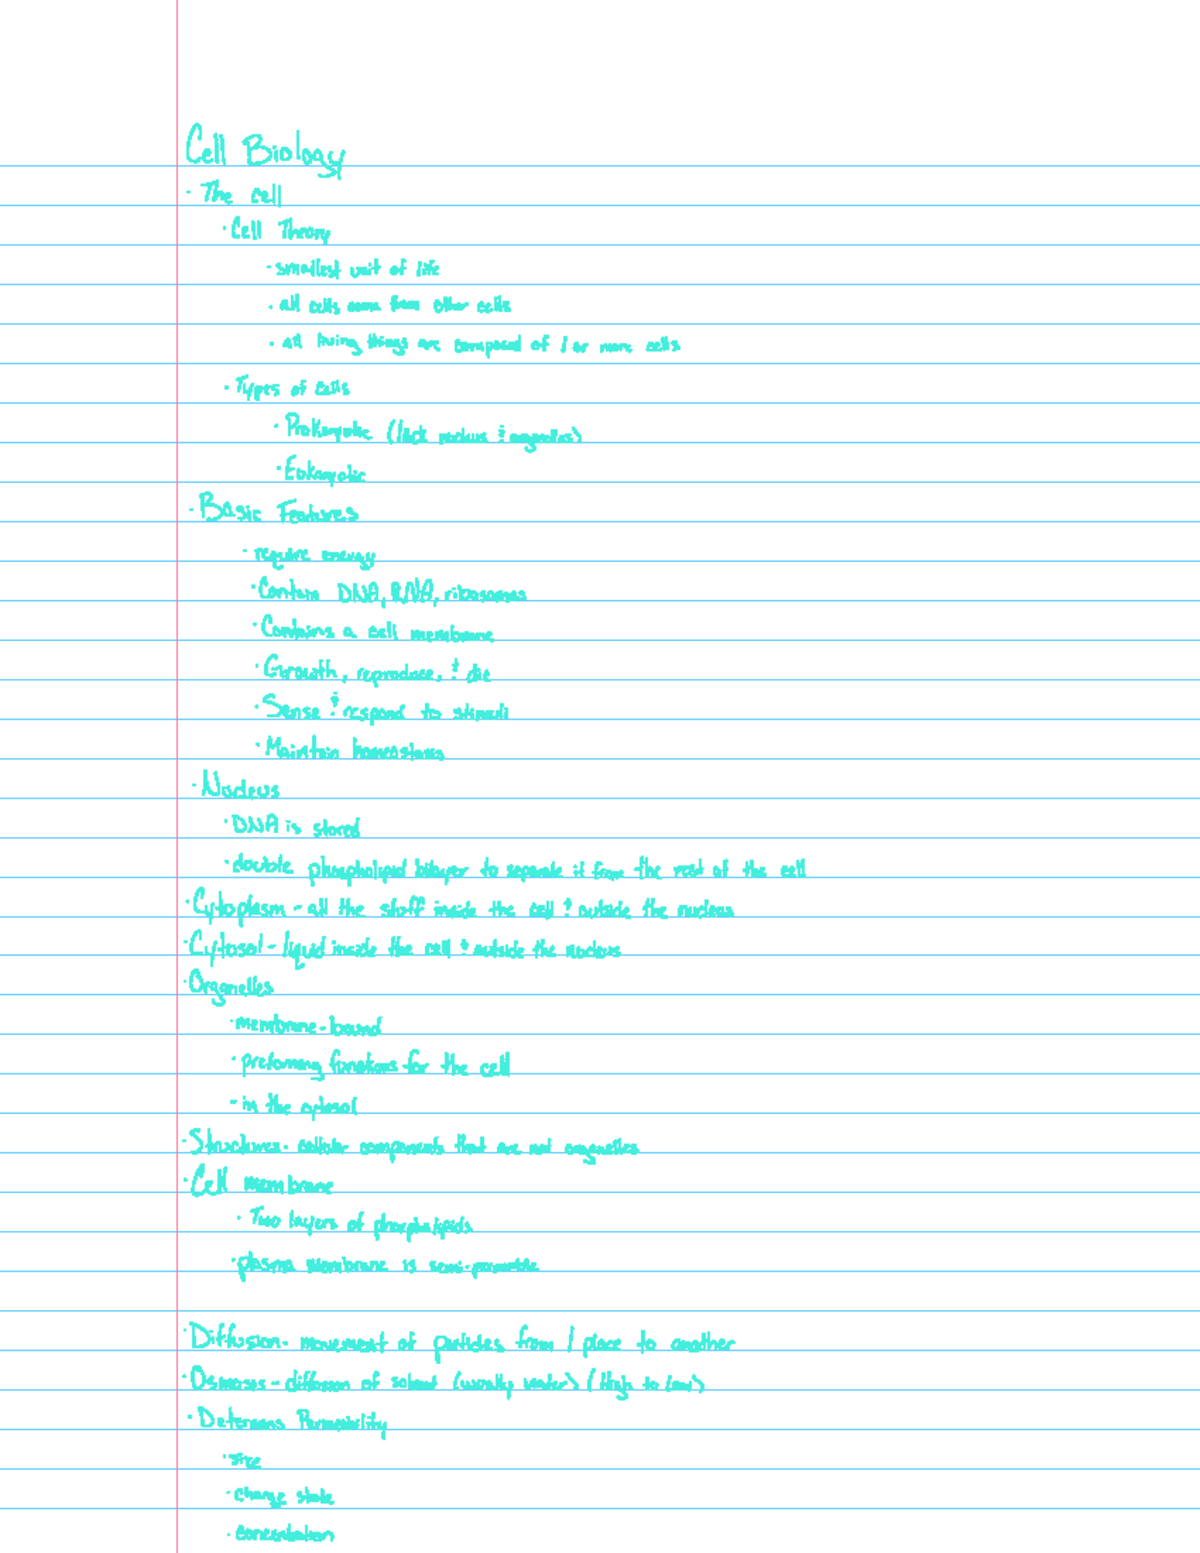 Cell Biology
· The cell
· Cell Theory
- smallest unit of life
· all cells come from other cells
· all living things are composed of 1 or more cells
· Types of cells
· Prokaryotic (lack nucleus & organelles)
· Eukaryotic
· Basic Features
· require energy
· Contain DNA, RNA, ribosomes
· Contains a cell membrane
· Growth, reproduce, & die
· Sense & respond to stimuli
· Maintain homeostasis
· Nucleus
· DNA is stored
· double phospholipid bilayer to separate it from the rest of the cell
· Cytoplasm - all the stuff inside the cell & outside the nucleus
· Cytosol - liquid inside the cell & outside the nucleus
· Organelles
· membrane-bound
· preforming functions for the cell
- in the cytosol
· Structures - cellular components that are not organelles
· Cell membrane
· Two layers of phospholipids
· plasma membrane is semi-permeable
· Diffusion - movement of particles from 1 place to another
· Osmosis - diffusion of solvent (usually water) (High to Low)
· Permeability
· size
· charge state
· concentration